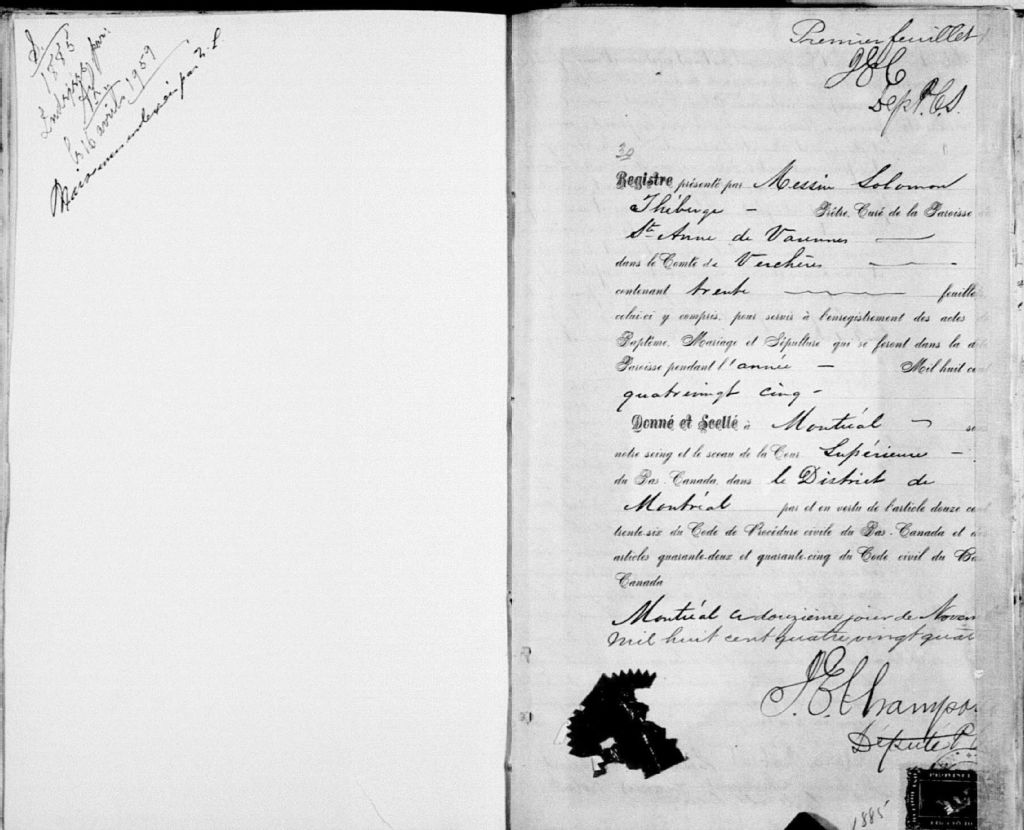 1885
Indexées par:
le 16 avril 1959
par
Premier feuillet
Dept. C.S.
30
Registre présenté par Messire Solomon
Théberge — Prêtre, Curé de la Paroisse
Ste Anne de Varennes —
dans le Comté de Verchères —
contenant trente — feuille
celui-ci y compris, pour servir à l'enregistrement des actes
Baptême, Mariage et Sépulture qui se feront dans la
Paroisse pendant l'année — Mil huit
quatrevingt cinq -
Donné et Scellé à Montréal —
notre seing et le sceau de la Cour Supérieure —
du Bas-Canada, dans le District de
Montréal par et en vertu de l'article douze
trente-six du Code de Procédure civile du Bas-Canada et
articles quarante-deux et quarante-cinq du Code civil du Ba
Canada
Montréal ce douzième jour de Novem
Mil huit cent quatre vingt quat
Député P
1885